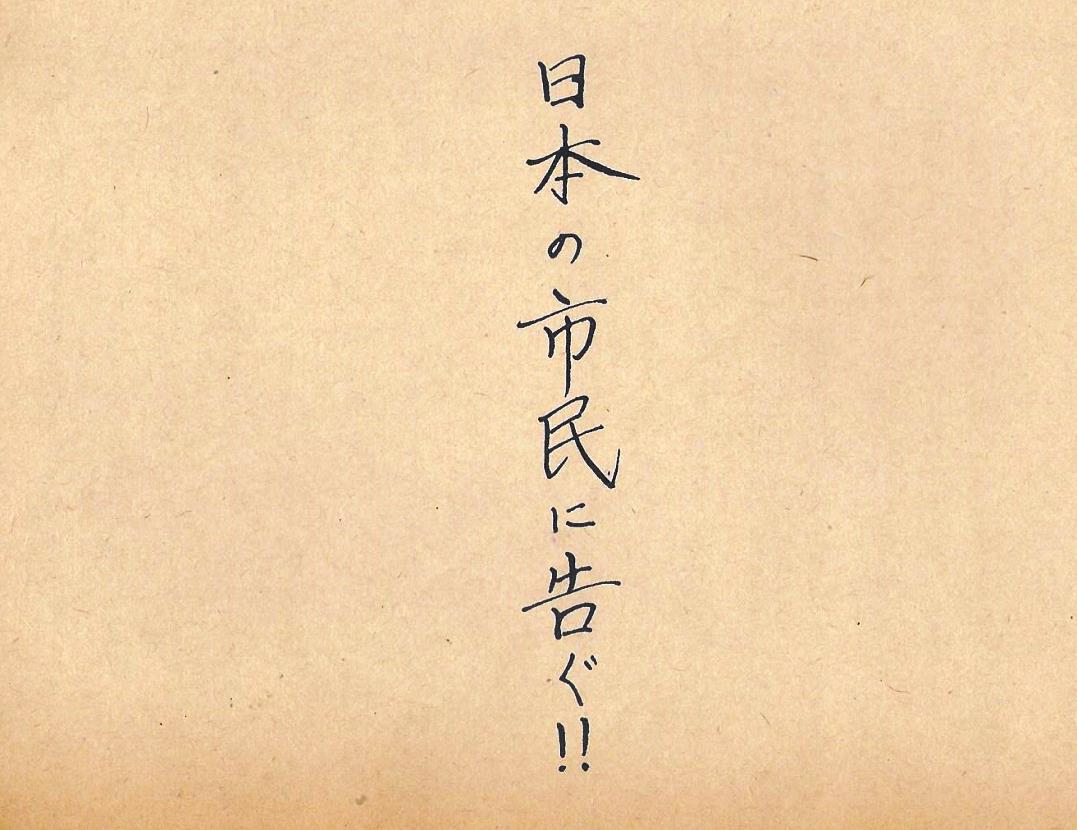 日本の市民に告ぐ!!